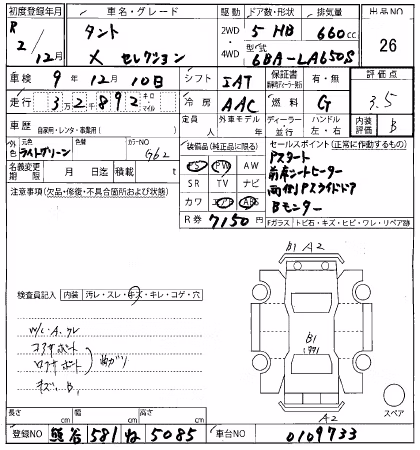 初度登録年月 車名・グレード 駆動 ドア数・形状 排気量 出品NO
R2/12月 タント X セレクション 2WD 4WD 5 HB 660cc 26
型式 6BA-LA650S
車検 9年12月10日 シフト IAT 保証書 有・無 評価点 3.5
走行 3万2千892 キロ・マイル 冷房 AAC 燃料 G
車歴 自家用・レンタ・事業用( ) 定員 人 外車/モデル 年 ディーラー 並行 ハンドル 左・右 内装評価 B
外色 元色 ライトグリーン 色替 カラーNO G62
名義変更期限 月 日迄 積載 t
装備品(純正品に限る) PS PW AW
SR TV ナビ
カワ エアB ABS
R券 7150円
セールスポイント(正常に作動するもの)
Pスタート
前席シートヒーター
両側Pスライドドア
Bモニター
注意事項(欠品・修復・不具合箇所および状態)
Fガラス トビ石・キズ・ヒビ・ワレ・リペア跡
B1 A2
検査員記入 内装 汚レ・スレ・キズ・キレ・コゲ・穴
B1
A2
スペア
長さ cm 幅 cm 高さ cm
登録NO 熊谷 581 ね 5085 車台NO 0109733